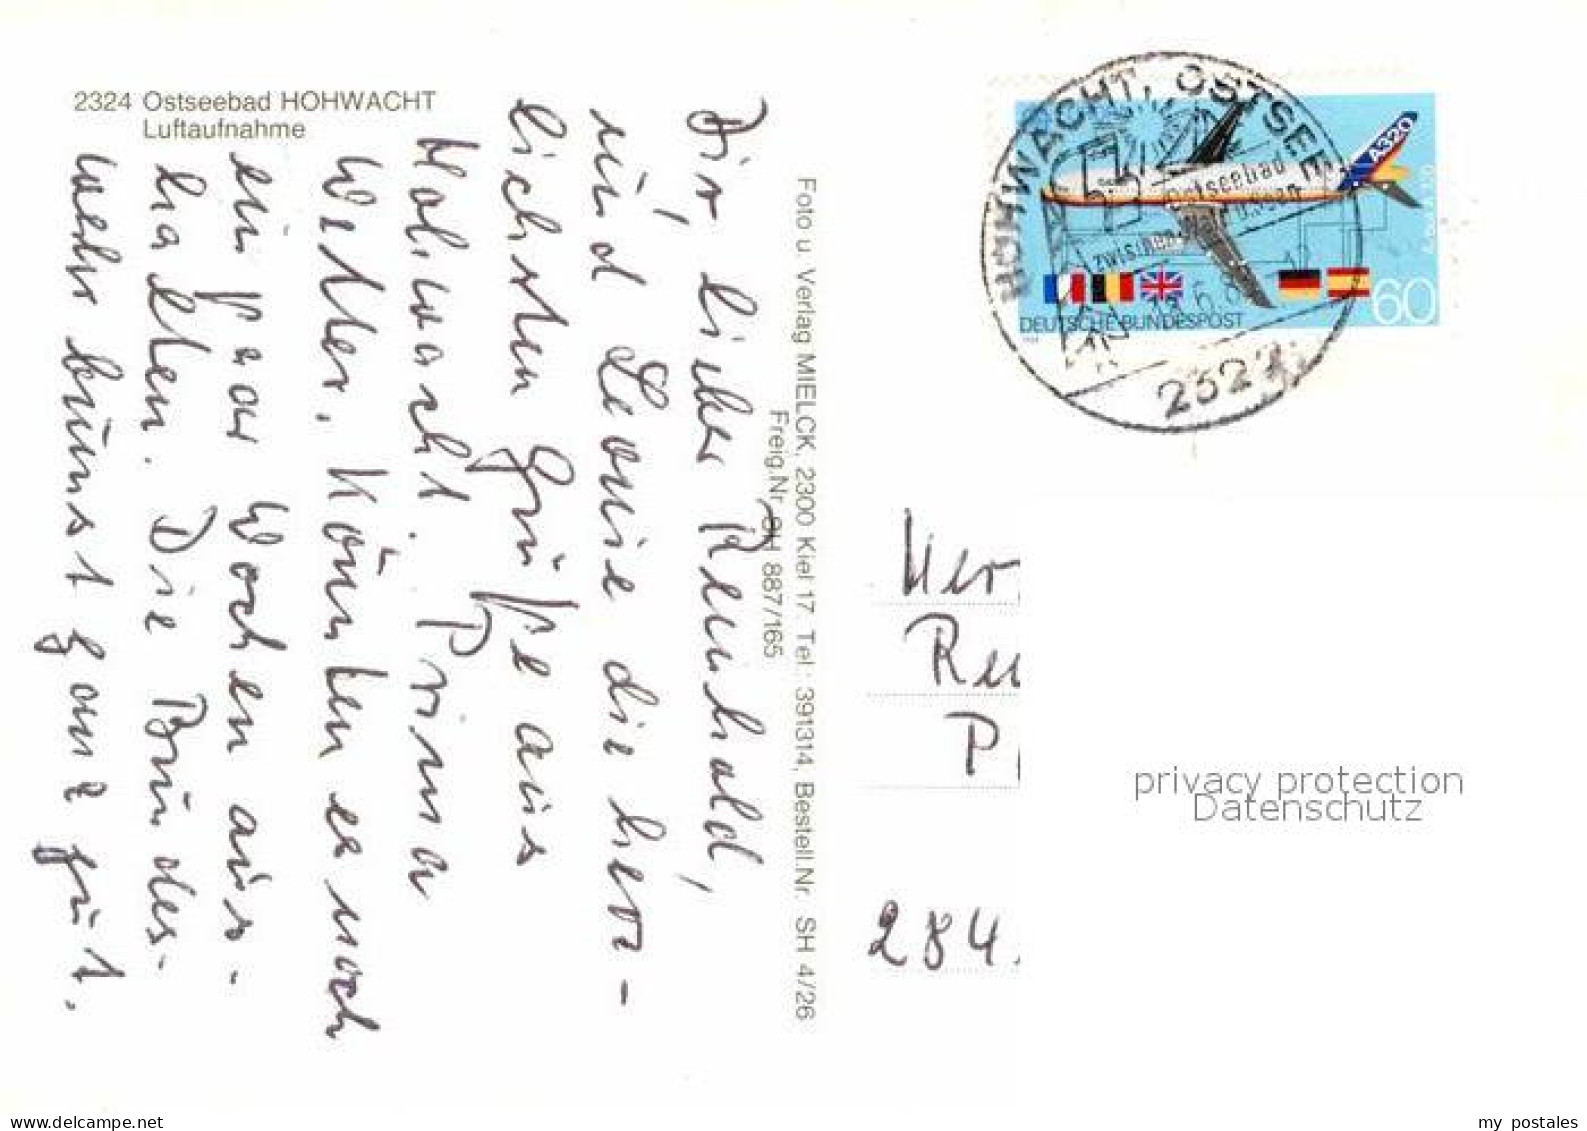 2324 Ostseebad HOHWACHT
Luftaufnahme
Dir, lieber Reinhold,
und Leonie die herz-
lichsten Grüße aus
Hohwacht. Prima
Wetter. Könnten es noch
ein paar Wochen aus-
halten. Die Bundes-
wehr bumst ganz gut.
Foto u. Verlag MIELCK, 2300 Kiel 17. Tel.: 391314, Bestell.Nr. SH 4/26
Freig.Nr. SH 887/165
HOHWACHT, OSTSEE
Ostseebad
zwischen
2324
A320
60
DEUTSCHE BUNDESPOST
Her
Rei
P
284
privacy protection
Datenschutz
www.delcampe.net
my_postales